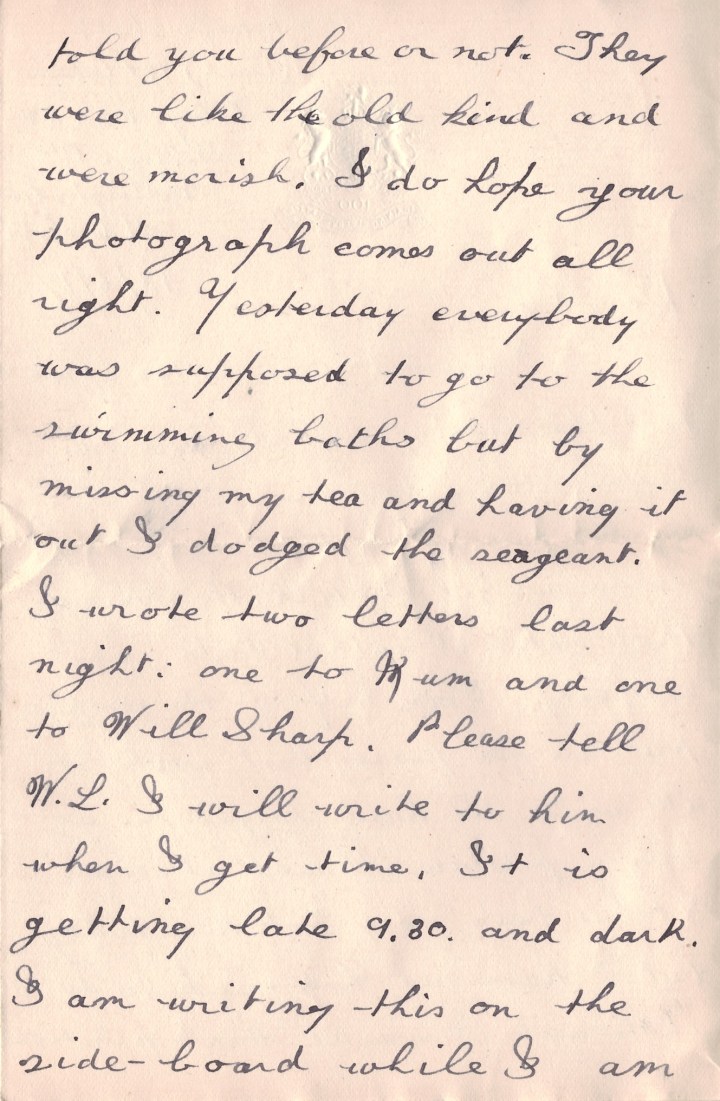 told you before or not. They
were like the old kind and
were morish. I do hope your
photograph comes out all
right. Yesterday everybody
was supposed to go to the
swimming baths but by
missing my tea and having it
out I dodged the seageant.
I wrote two letters last
night: one to Mum and one
to Will Sharp. Please tell
W.L. I will write to him
when I get time. It is
getting late 9.30. and dark.
I am writing this on the
side-board while I am